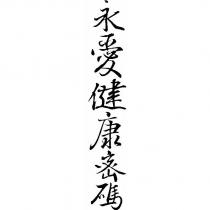 永愛健康密碼